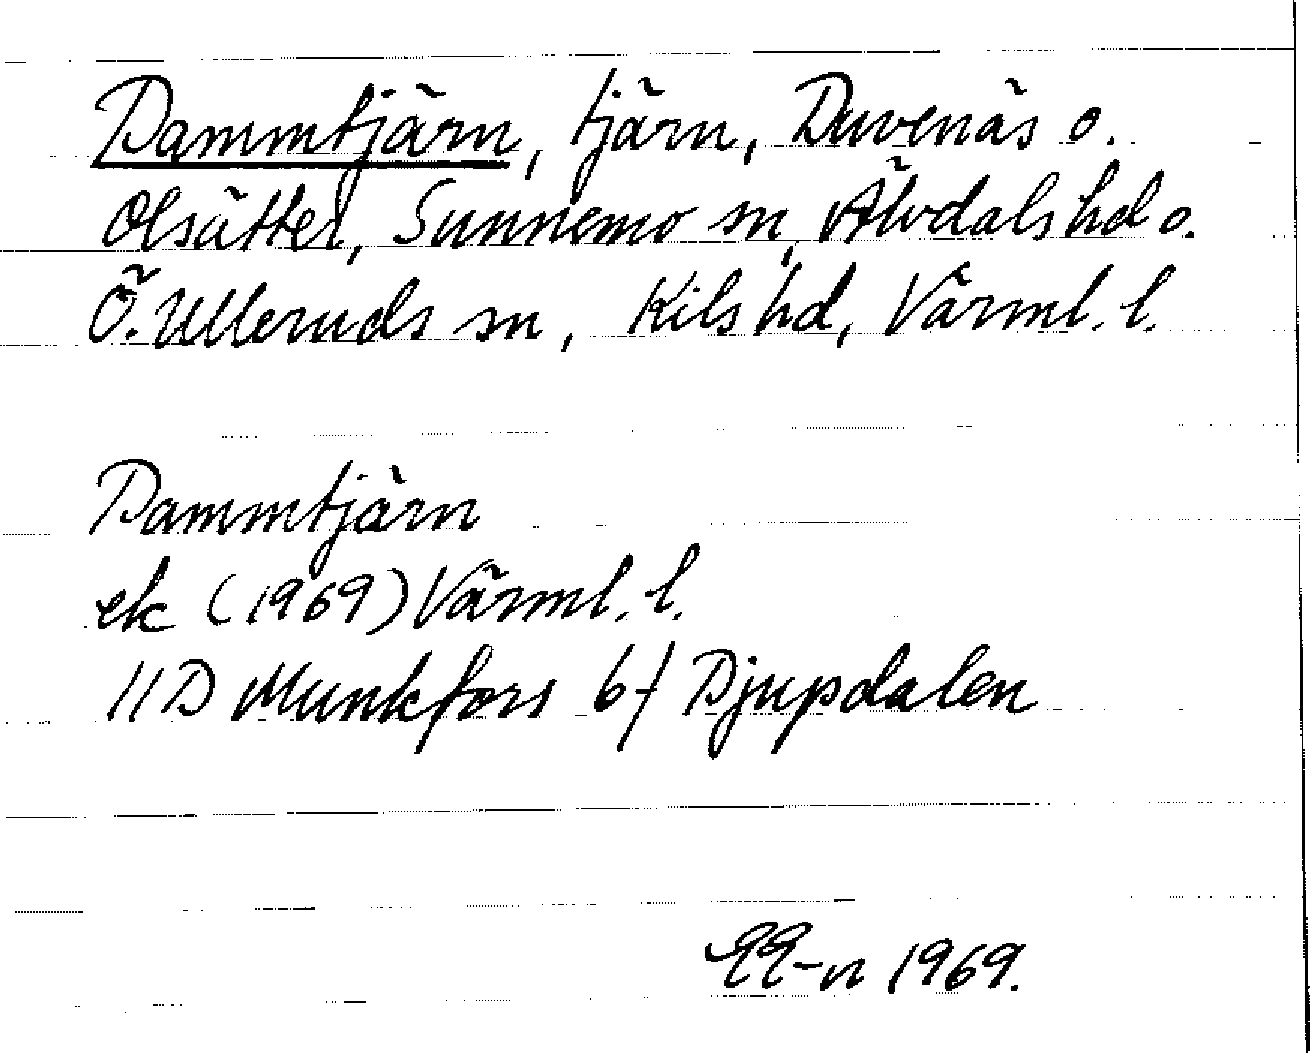 Dammtjärn, tjärn, Duvenäs o.
Olsätter, Sunnemo sn, Älvdals hd o.
Ö. Ulleruds sn, Kils hd, Värml. l.
Dammtjärn
ek (1969) Värml. l.
11D Munkfors 6f Djupdalen
1969.